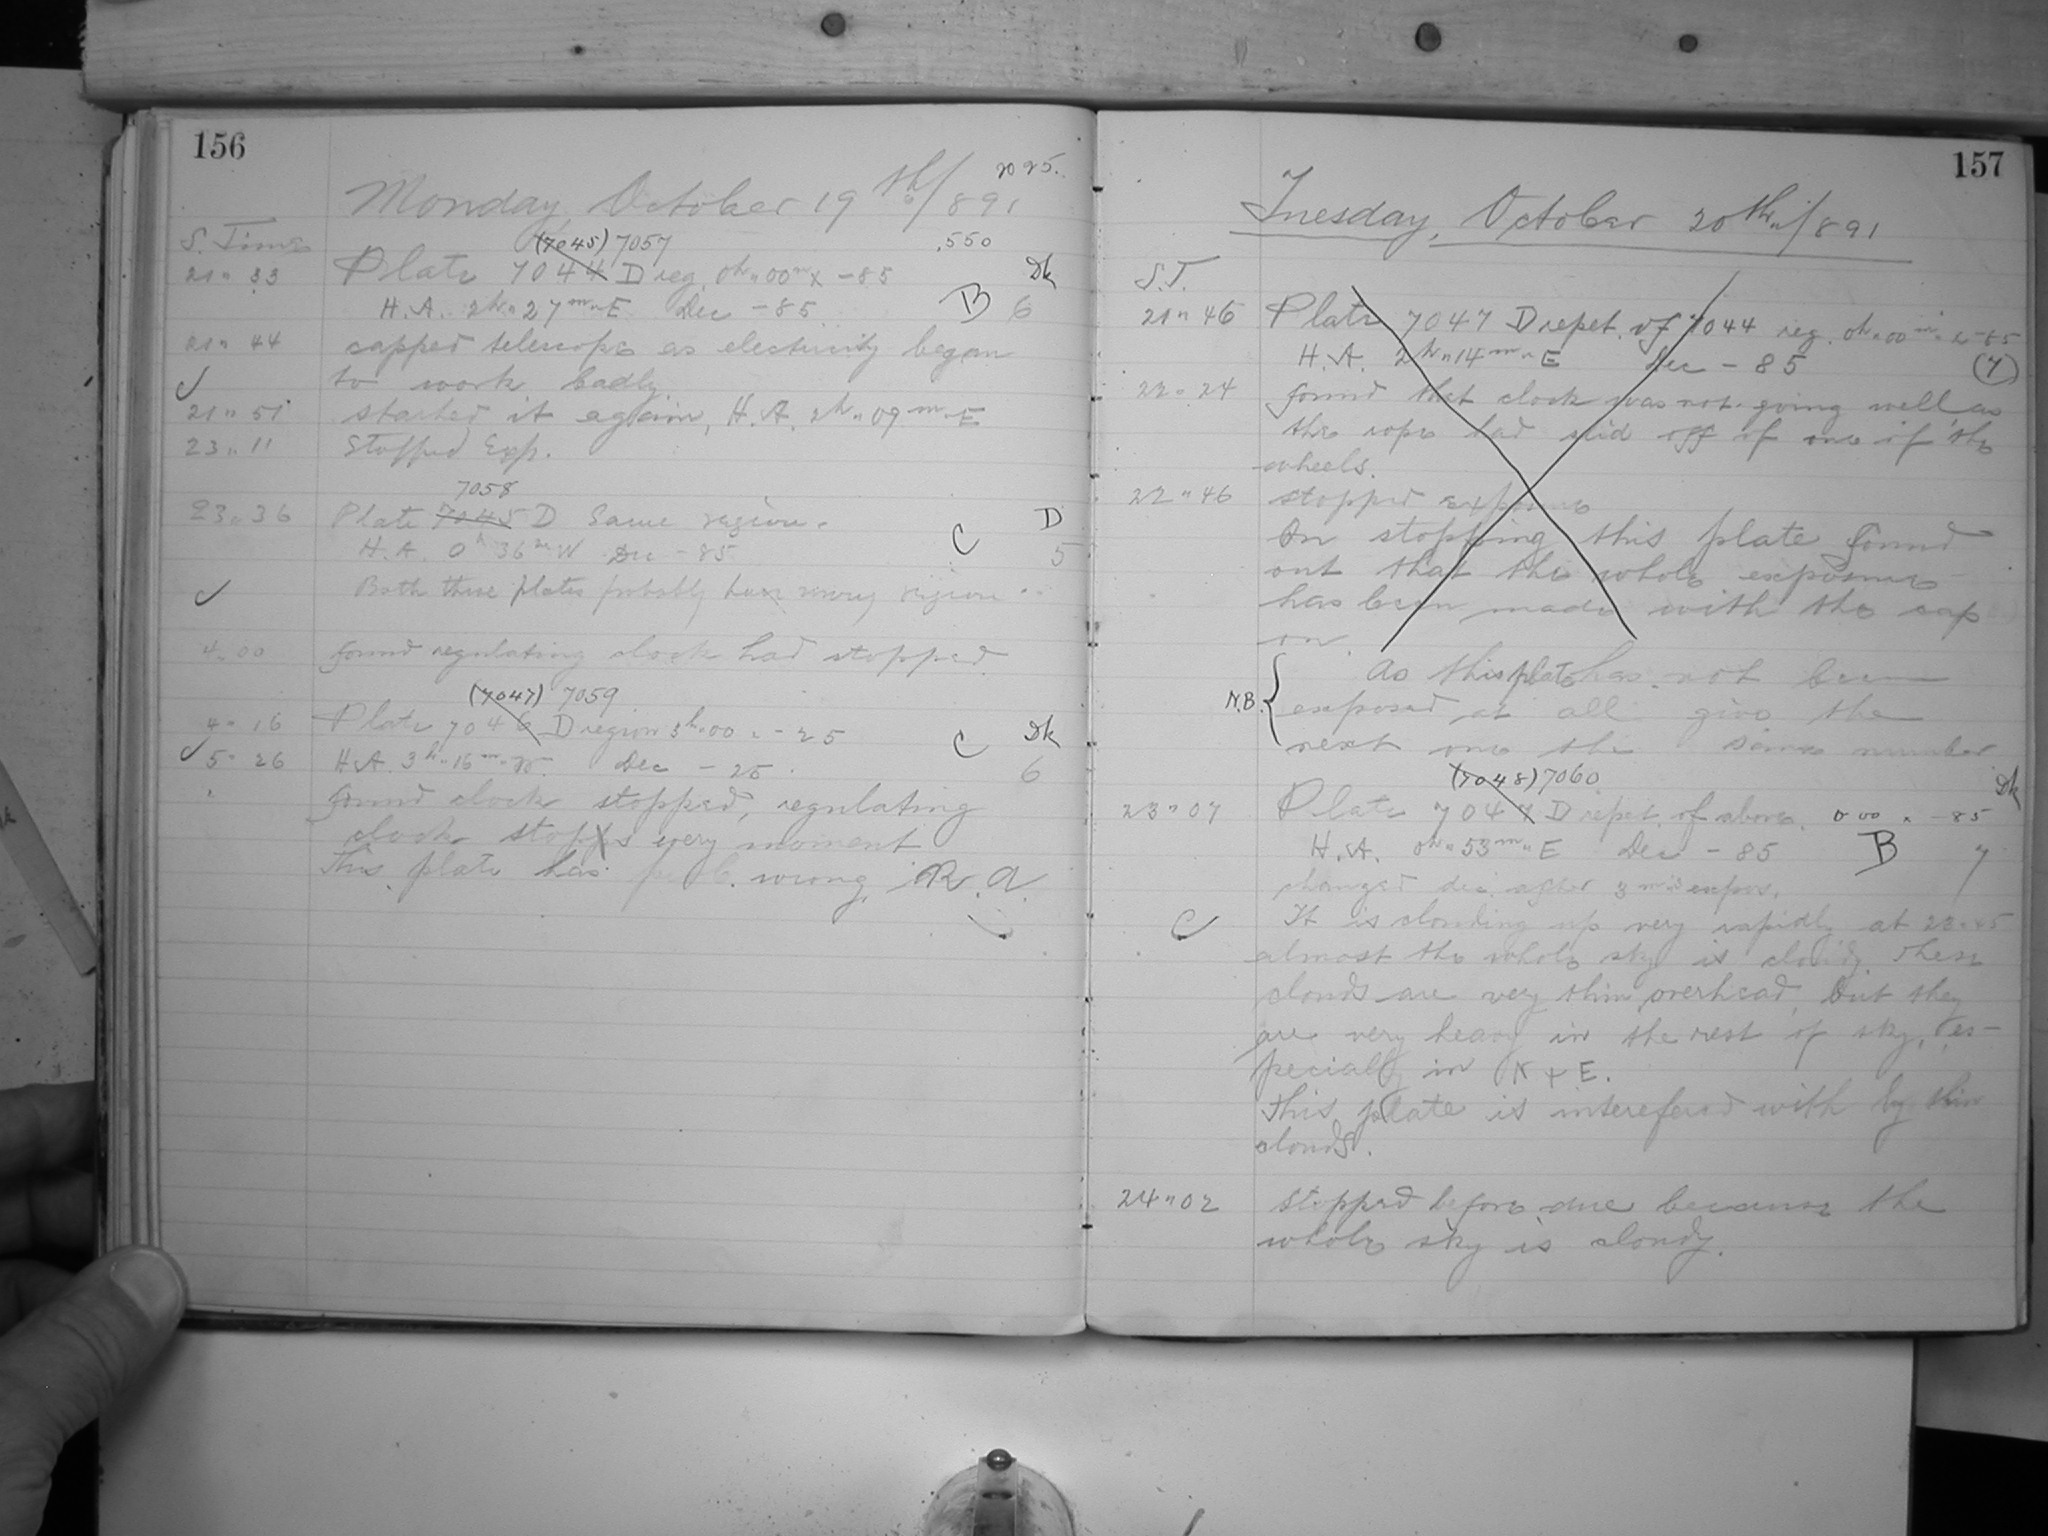 156
2025.
Monday, October 19th/891
S. Time
(7045) 7057
.550
21" 33 Plate 7044 D reg. 0h"00m x -85 Dk
H.A. 2h"27m"E Dec -85 B 6
21" 44 capped telescope as electricity began
to work badly.
21" 51 started it again, H.A. 2h"09m"E
23" 11 Stopped Exp.
7058
23" 36 Plate 7045 D Same region. D
H.A. 0h 36m W Dec -85 C 5
Both these plates probably have wrong region
4" 00 found regulating clock had stopped
(7047) 7059
4" 16 Plate 7046 D region 3h"00 x -25 Dk
5" 26 H.A. 3h"16m"W. Dec -25. C 6
found clock stopped, regulating
clock stops every moment
This plate has prob. wrong R.A.
157
Tuesday, October 20th"/891
S.T.
21" 46 Plate 7047 D repet. of 7044 reg. 0h"00m" x -85
H.A. 2h"14m"E Dec -85 (7)
22" 24 found that clock was not going well as
the rope had slid off of one of the
wheels.
22" 46 stopped exposure
On stopping this plate found
out that the whole exposure
has been made with the cap
on.
As this plate has not been
N.B. exposed at all give the
next one the same number
(7048) 7060
23" 07 Plate 7047 D repet. of above. 0 00 x -85 Dk
H.A. 0h"53m"E Dec -85 B 7
changed dec. after 3 min expos.
C It is clouding up very rapidly at 23"45
almost the whole sky is cloudy. These
clouds are very thin overhead, but they
are very heavy in the rest of sky, es-
pecially in N + E.
This plate is interefered with by thin
clouds.
24" 02 Stopped before due because the
whole sky is cloudy.